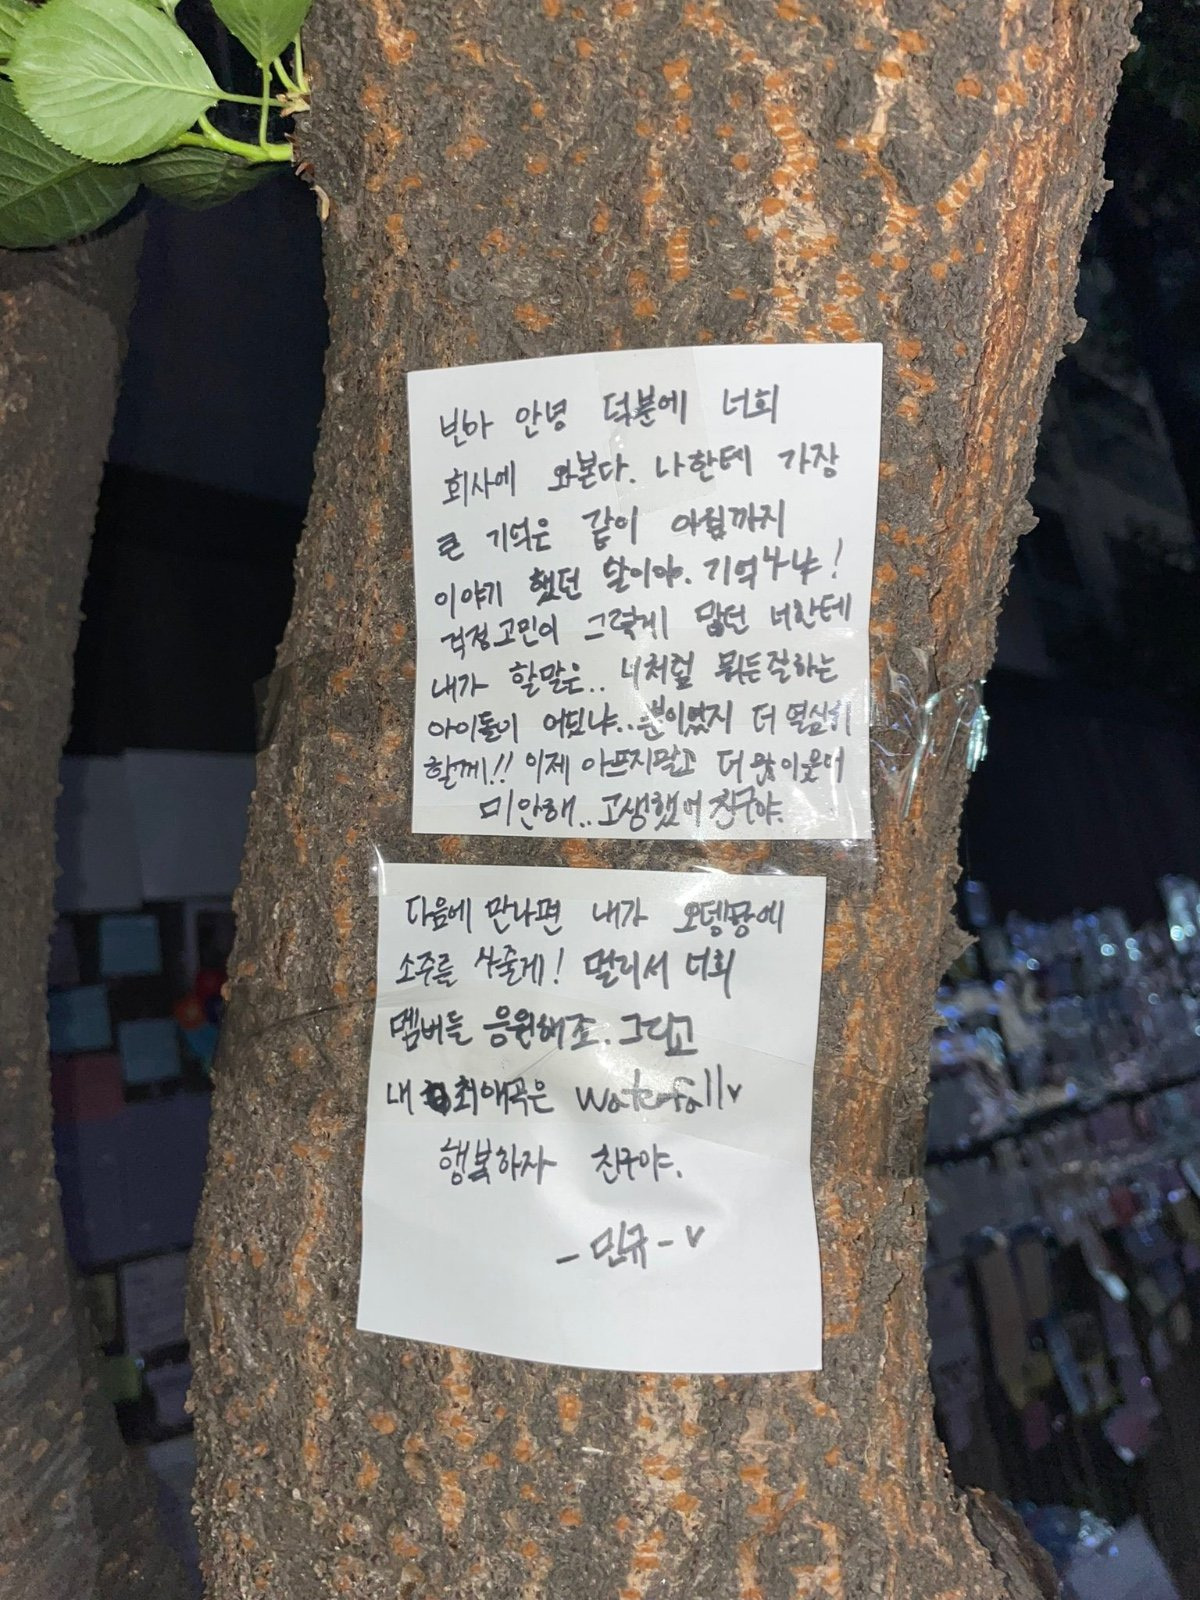 빈아 안녕 덕분에 너희
회사에 와본다. 나한테 가장
큰 기억은 같이 아침까지
이야기 했던 날이야. 기억나냐!
걱정고민이 그렇게 많던 너한테
내가 할말은.. 너처럼 뭐든잘하는
아이돌이 어딨냐.. 뿐이였지 더 열심히
할께!! 이제 아프지말고 더 많이웃어
미안해.. 고생했어 친구야.
다음에 만나면 내가 오뎅탕에
소주를 사줄게! 멀리서 너희
멤버들 응원해줘. 그리고
내 최애곡은 waterfall♥
행복하자 친구야.
- 민규 - ♥